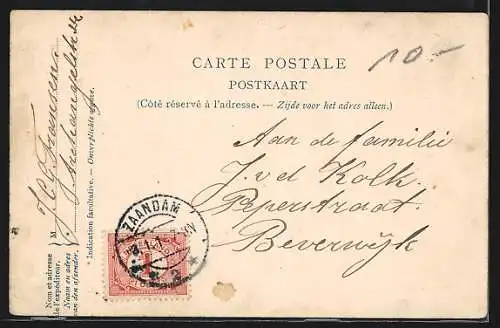 CARTE POSTALE
POSTKAART
(Côté réservé à l'adresse. — Zijde voor het adres alleen.)
10.-
Aan de familie
J. v d Kolk.
Peperstraat
Beverwijk
ZAANDAM
1
M
* Indication facultative. — Onverplichte opgave.
Nom et adresse
de l'expéditeur.
Naam en adres
van den afzender.